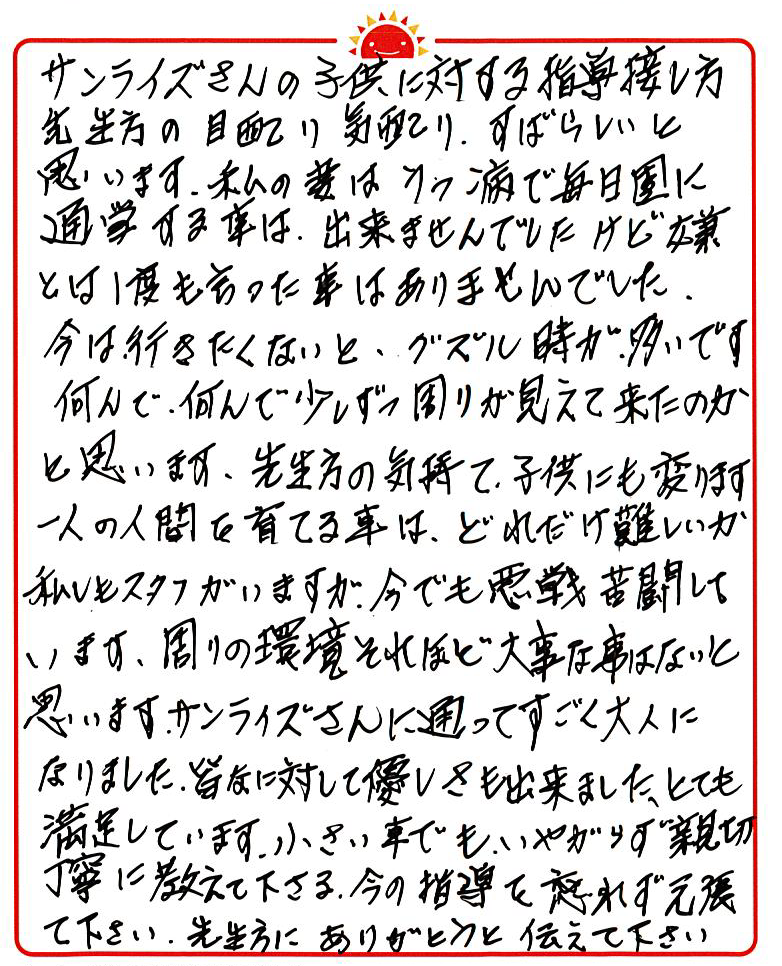 サンライズさんの子供に対する指導接し方
先生方の目配り気配り、すばらしいと
思います。私の妻はうつ病で毎日園に
通学する事は、出来ませんでしたけど嫌
とは1度も言った事はありませんでした。
今は、行きたくないと、グズル時が、多いです
何んで、何んで少しずつ周りが見えて来たのか
と思います、先生方の気持て、子供にも変ります
一人の人間を育てる事は、どれだけ難しいか
私しもスタフがいますが、今でも悪戦苦闘して
います、周りの環境それほど大事な事はないと
思います。サンライズさんに通ってすごく大人に
なりました。皆なに対して優しさも出来ました、とても
満足しています。小さい事でも、いやがらず親切
丁寧に教えて下さる。今の指導を忘れず元張
て下さい。先生方にありがとうと伝えて下さい